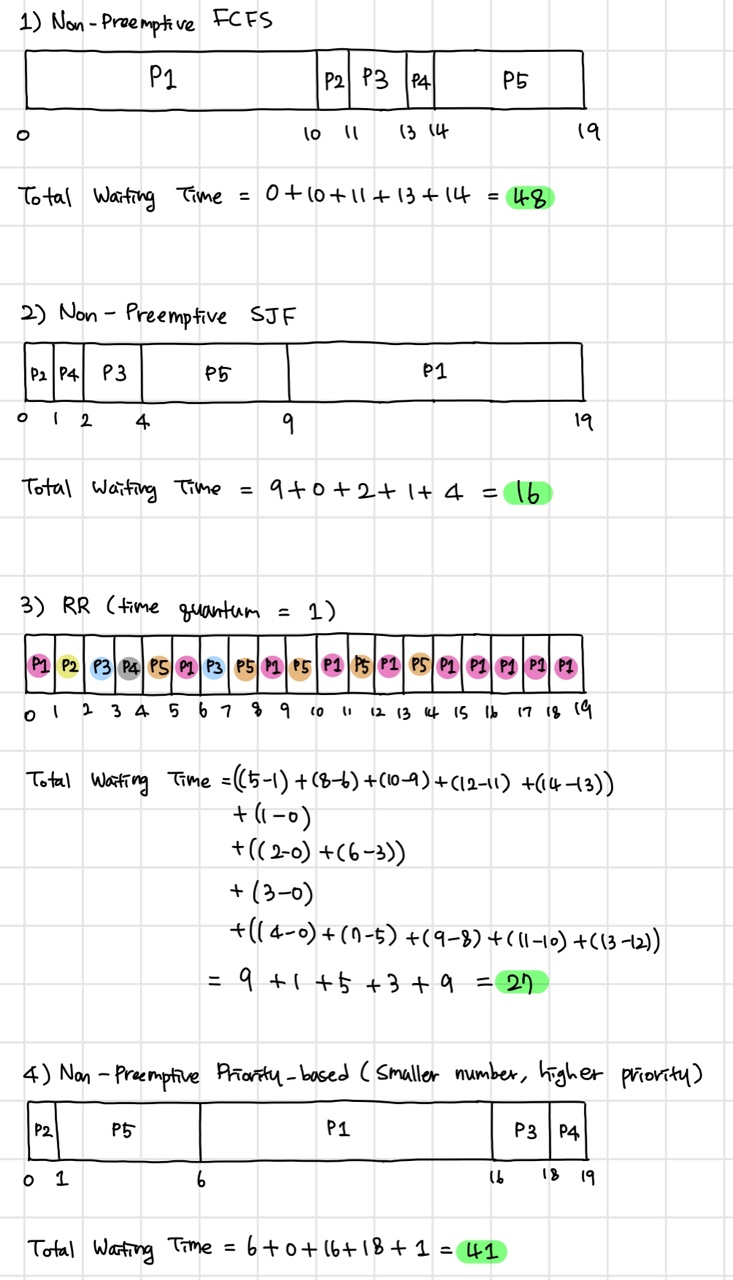 1) Non-Preemptive FCFS
P1 P2 P3 P4 P5
0 10 11 13 14 19
Total Waiting Time = 0+10+11+13+14 = 48
2) Non-Preemptive SJF
P2 P4 P3 P5 P1
0 1 2 4 9 19
Total Waiting Time = 9+0+2+1+4 = 16
3) RR (time quantum = 1)
P1 P2 P3 P4 P5 P1 P3 P5 P1 P5 P1 P5 P1 P5 P1 P1 P1 P1 P1
0 1 2 3 4 5 6 7 8 9 10 11 12 13 14 15 16 17 18 19
Total Waiting Time =((5-1)+(8-6)+(10-9)+(12-11)+(14-13))
+(1-0)
+((2-0)+(6-3))
+(3-0)
+((4-0)+(7-5)+(9-8)+(11-10)+(13-12))
= 9+1+5+3+9 = 27
4) Non-Preemptive Priority-based (Smaller number, higher priority)
P2 P5 P1 P3 P4
0 1 6 16 18 19
Total Waiting Time = 6+0+16+18+1 = 41